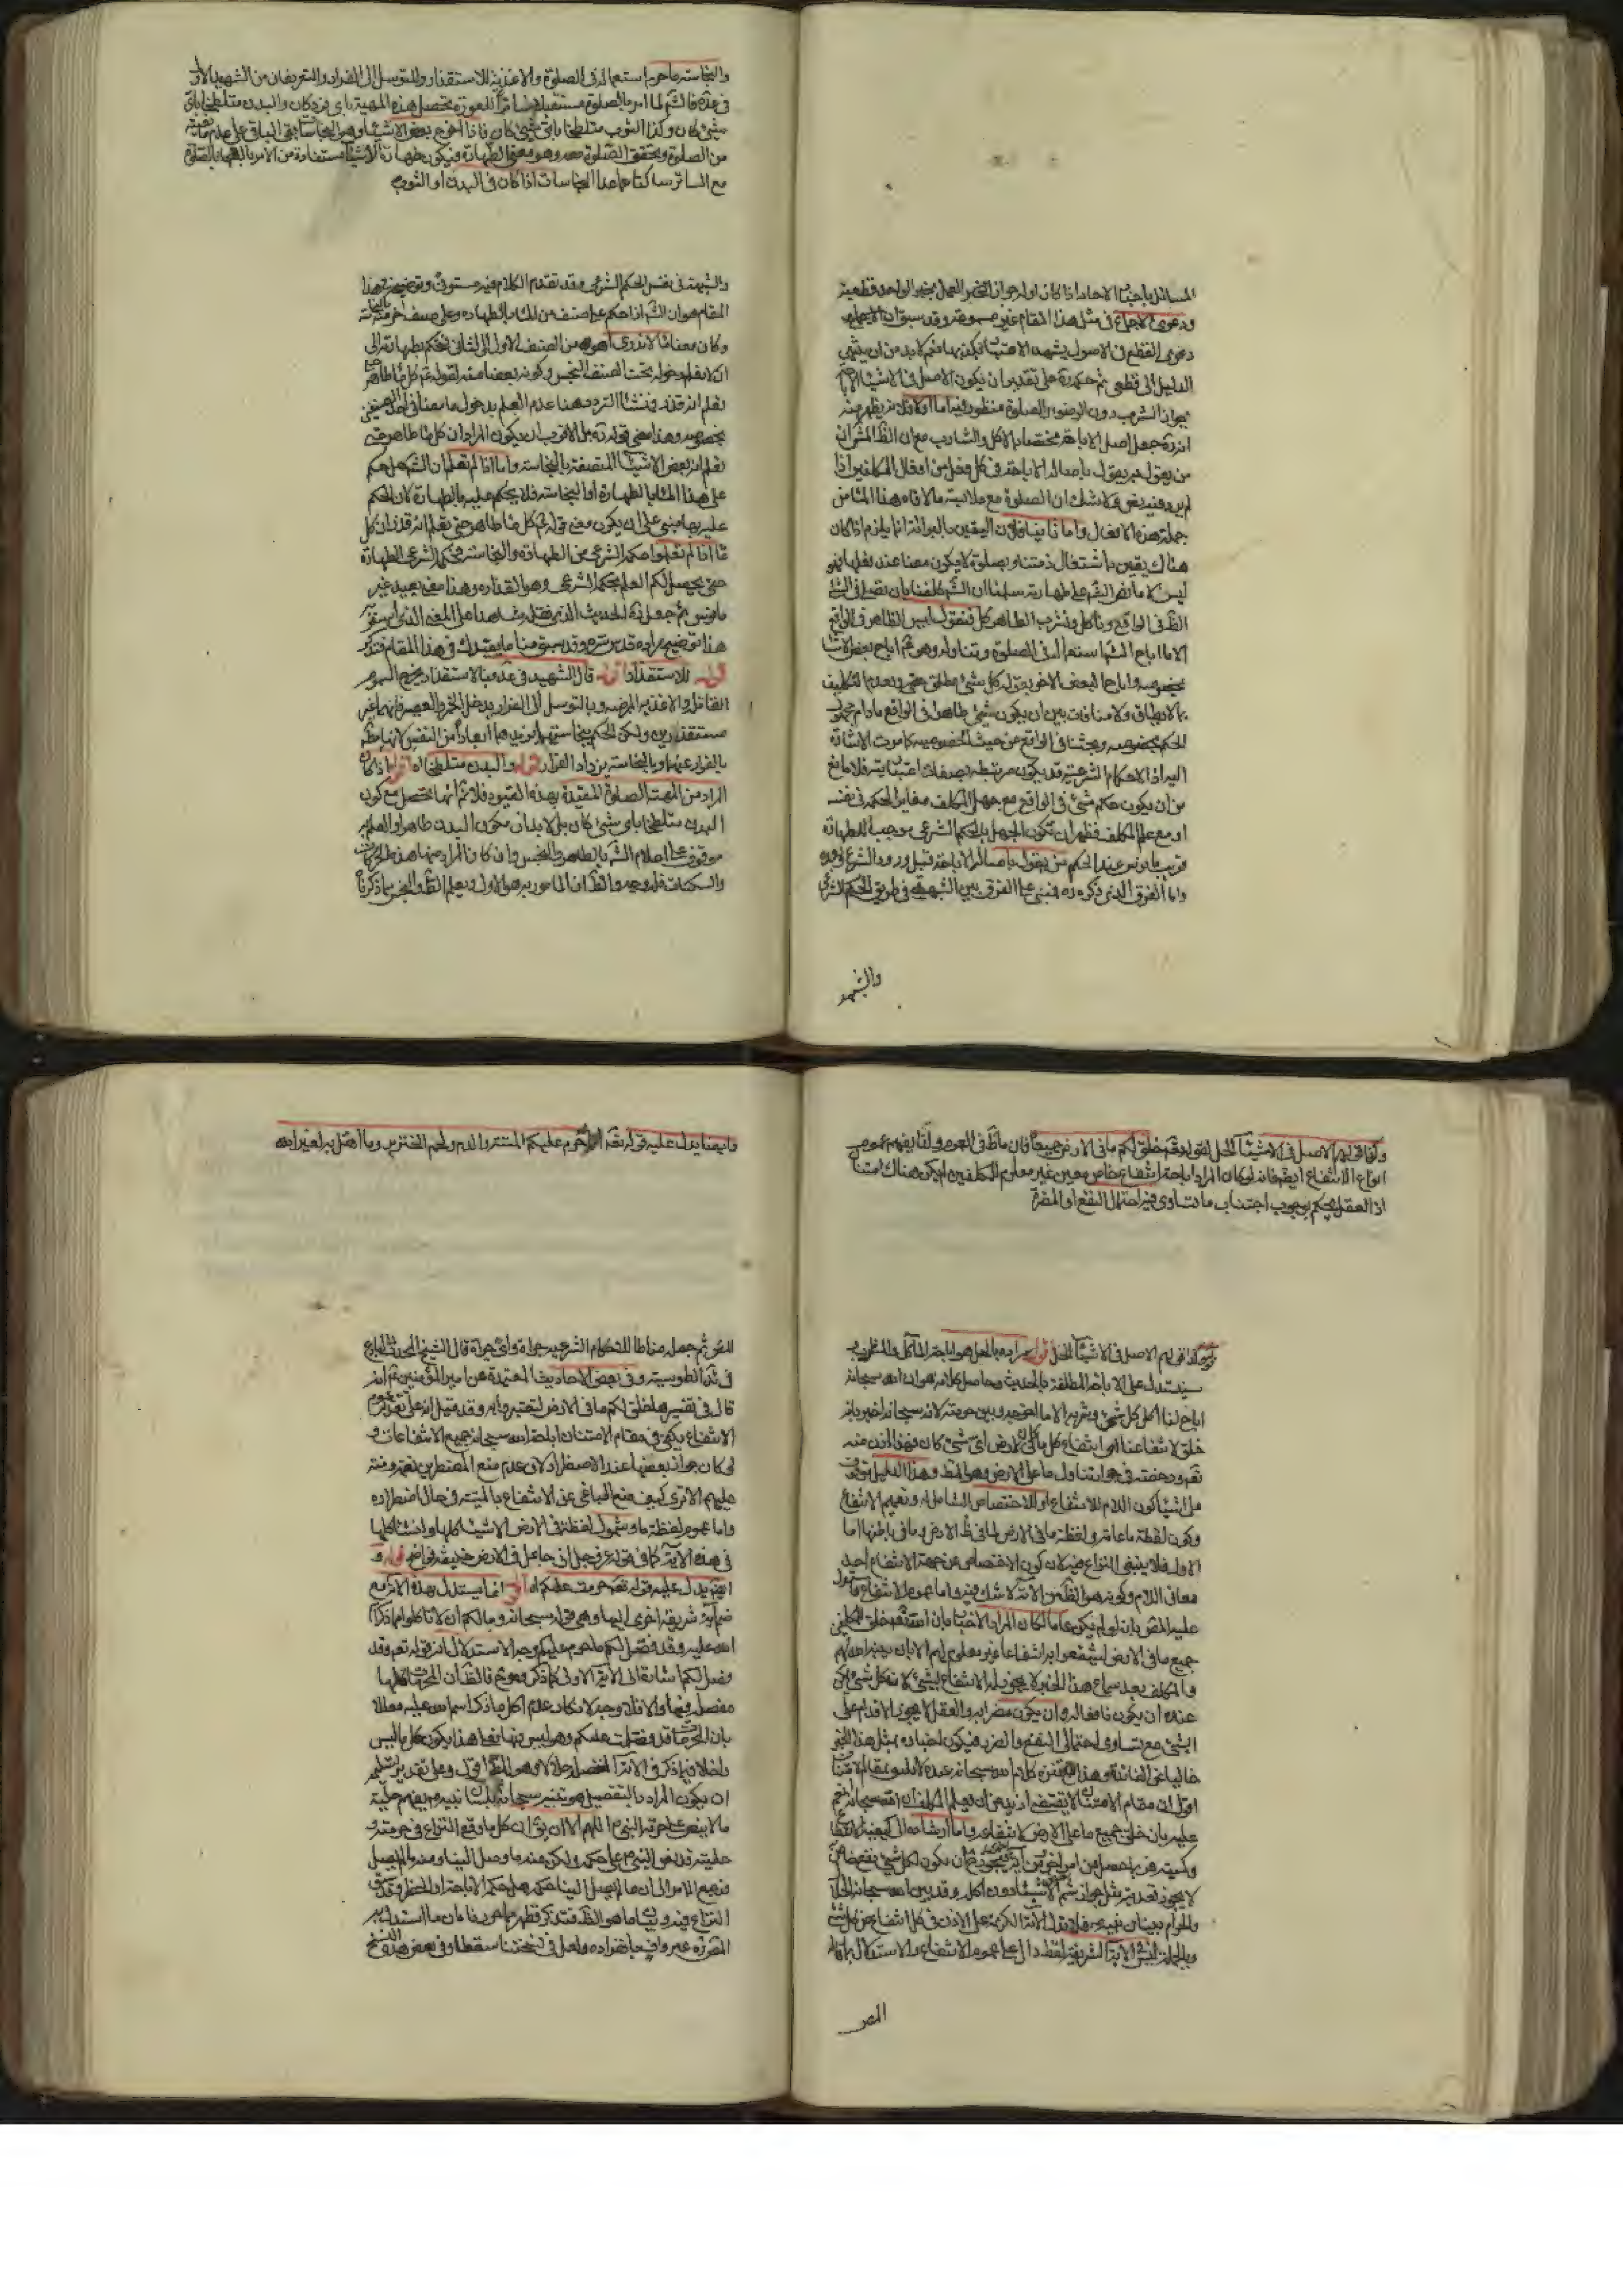 المسائل باخبار الاحاد اذا كان اوله جواز العمل بخبر الواحد قطعية
ودعوى الاجماع في مثل هذا المقام غير مسموعة وقد سبق ان الاجماع
دعوى القطع في الاصول يشهد الاعتبار بكذبها فلابد من ان ينتهى
الدليل الى قطعى ثم حكمه ره على تقدير ان يكون الاصل في الاشياء الاباحة
بجواز الشرب دون الوضوء والصلوة منظور فيه اما اولا فلانه يظهر منه
انه ره جعل اصل الاباحة مختصا بالاكل والشارب مع ان الظ المشهور ان
من يقول به يقول باصالة الاباحة في كل فعل من افعال المكلفين اذا
لم يرد فيه نص ولا شك ان الصلوة مع ملابسة ما لاقاه هذا الماء من
جملة هذه الافعال واما ثانيا فلان اليقين بالبرائة انما يلزم اذا كان
هناك يقين باشتغال ذمتنا بصلوة لا يكون معنا عند فعلها
ليس الا ما نص الشه على طهارته سلمنا ان الشه كلفنا بان نصلى في الشئ
الظ في الواقع وناكل ونشرب الطاهر كل فنقول ليس الطاهر في الواقع
الا ما اباح الشه استعماله في الصلوة وتناوله وهو ثم اباح بعض الاشياء
بخصوصه واباح البعض الاخر بقوله كل شئ مطلق حتى وبعدم التكليف
بما لا يطاق ولا منافات بين ان يكون شئ طاهرا في الواقع مادام مجهول
الحكم بخصوصه ونجسا في الواقع من حيث الخصوصية كما مرت الاشارة
اليه اذ الاحكام الشرعية قد يكون مرتبطة بصفات اعتبارية فلا مانع
من ان يكون حكم شئ في الواقع مع جهل المكلف مغاير الحكمه في نفسه
او مع علم المكلف فظهر ان تكون الجهل بالحكم الشرعى موجب للطهارة
قريب مانوس عند الحكم من يقول باصالة الاباحة قبل ورود الشرع
واما الفرق الذى ذكره ره فمبنى على الفرق بين الشبهة في طريق الحكم الشرعى
والشبهة
والنجاسة ما حرم استعماله في الصلوة والاغذية للاستقذار وللتوسل الى الفرار والتعريفان من الشهيد الاول
في قواعده فالشه لما امر بالصلوة مستقبلا ساترا للعورة يحصل هذه المهية باى فرد كان والبدن متلطخا باى
شئ كان وكذا الثوب متلطخا باى شئ كان فاذا اخرج بعض الاشياء وهى النجاسات بقى الباقى على عدم مانعيته
من الصلوة وتحقق الصلوة معه وهو معنى الطهارة فيكون طهارة الاشياء مستفادة من الامر بالصلوة
مع الساتر ساكتا عما عدا النجاسات اذا كان في البدن او الثوب
والشبهة في نفس الحكم الشرعى وقد تقدم الكلام فيه مستوفى وتوضيحه هذا
المقام هو ان الشه اذا حكم على صنف من الماء بالطهارة وعلى صنف اخر منه بالنجاسة
وكان معنا ماء لا ندرى اهو من الصنف الاول او الثانى نحكم بطهارته الى
ان لا نعلم دخوله تحت الصنف النجس وكونه بعضا منه لقوله ثم كل ماء طاهر حتى
نعلم انه قذر فمنشا التردد هنا عدم العلم بدخول ما معنا في احد الصنفين
بخصوصه وهذا معنى قوله ره بل الاقرب ان يكون المراد ان كل ماء طاهر حتى
نعلم انه بعض الاشياء المتصفة بالنجاسة واما اذا لم نعلم ان الشه هل حكم
على هذا الماء بالطهارة او النجاسة فلا يحكم عليه بالطهارة لان الحكم
عليه بها مبنى على ان يكون معنى قوله ثم كل ماء طاهر حتى نعلم انه قذر ان كل
ماء اذا لم تعلموا حكمه الشرعى من الطهارة والنجاسة فحكمه الشرعى الطهارة
حتى يحصل لكم العلم بحكمه الشرعى وهو القذارة وهذا معنى بعيد غير
مانوس ثم جعل ره الحديث الذى نقله شاهدا على المعنى الذى
هذا توضيح مراده قدس سره وقد سبق منا ما يفيدك في هذا المقام فتذكر
قوله للاستقذار اقوله قال الشهيد في قواعده بالاستقذار يخرج السموم
القاتلة والاغذية الممرضة وبالتوسل الى الفرار يدخل الخمر والعصير فانهما غير
مستقذرين ولكن الحكم بنجاستهما يزيدهما ابعادا من النفس لانها مطلوبة
بالفرار عنهما وبالنجاسة يزداد الفرار قوله والبدن متلطخا اه اقول اذا كان
المراد من المهية الصلوة المقيدة بهذه القيود فلا ثم انها تحصل مع كون
البدن متلطخا باى شئ كان بل لابد ان يكون البدن طاهرا والعلم به
موقوف على اعلام الشه بالطاهر والنجس وان كان المراد منها هذه الحركات
والسكنات فله وجه والظ ان المامور به هو الاول ويعلم الظ والنجس بما ذكرنا
وكذا قولهم الاصل في الاشياء الحل لقوله تعه خلق لكم ما في الارض جميعا فان ما ظ في العموم ولنا يفهم عموم
انواع الانتفاع ايضا فانه لو كان المراد اباحة انتفاع خاص معين غير معلوم للمكلفين لم يكن هناك امتنان
اذ العقل يحكم بوجوب اجتناب ما تساوى فيه احتمال النفع او المضرة
قوله وكذا قولهم الاصل في الاشياء الحل اقول مراده بالحل هو اباحة الماكل والمشرب
سيستدل على الاباحة المطلقة بالحديث وحاصل كلامه هو ان الله سبحانه
اباح لنا اكل كل شئ وشربه الا ما اخرجه وبين حرمته لانه سبحانه اخبر بانه
خلق لانتفاعنا اى انتفاع كل ما في الارض اى شئ كان فهذا اذن منه
تعه ورخصته في جواز تناول ما على الارض وهو المط وهذا الدليل يتوقف
على اشياء كون اللام للانتفاع او للاختصاص الشامل له وتعميم الانتفاع
وكون لفظة ما عامة ولفظة ما في الارض لما في ظ الارض وما في باطنها اما
الاول فلا ينبغى النزاع فيه لان كون الاختصاص من جهة الانتفاع احد
معانى اللام وكونه هو الظ من الاية لا شك فيه واما عموم الانتفاع فاستدل
عليه المص بانه لو لم يكن عاما لكان المراد الاخبار بان الله تعه خلق للمكلفين
جميع ما في الارض لينتفعوا به انتفاعا غير معلوم لهم الا بان يبينه الله لهم
والمكلف بعد سماع هذا الخبر لا يجوز له الانتفاع بشئ لان كل شئ يمكن
عنده ان يكون نافعا له وان يكون مضرا به والعقل لا يجوز الاقدام على
الشئ مع تساوى احتمالى النفع والضر فيكون اخباره بمثل هذا الخبر
خاليا عن الفائدة وهذا مع تنزه كلام الله سبحانه عنه لا يناسب مقام الامتنان
اقول ان مقام الامتنان لا يقتضى ازيد من ان يعلم المكلف ان الله سبحانه انعم
عليه بان خلق جميع ما على الارض لانتفاعه واما ارشاده الى كيفية الانتفاع
وكميته فربما حصل من امر اخر
لا يجوز تعديته مثل جواز شم الاشياء دون اكله وقد بين الله سبحانه الحلال
والحرام ببيان نبيه فلا تدل الاية الكريمة على الاذن في كل انتفاع من كل شئ
وبالجملة ليس في الاية الشريفة لفظ دال على عموم الانتفاع والاستدلال
المص
وايضا يدل عليه قوله تعه انما حرم عليكم الميتة والدم ولحم الخنزير وما اهل به لغير الله
المص ثم جعله مناطا للاحكام الشرعية جراة واى جراة قال الشيخ المحدث
في الطوسية وفي بعض الاحاديث المعتمدة عن امير المؤمنين ثم انه
قال في تفسيرها خلق لكم ما في الارض لتعتبروا به وقد قيل انه على تقدير عموم
الانتفاع يكفى في مقام الامتنان اباحة الله سبحانه جميع الانتفاعات و
لو كان جواز بعضها عند الاضطرار لان عدم منع المضطر من نعمة ومنة
عليهم الا ترى كيف منع الباغى عن الانتفاع بالميتة في حال اضطراره
واما عموم لفظة ما وشمول لفظة في الارض الاشياء كلها وانشاء كلها
في هذه الاية كما في قوله عز وجل انى جاعل في الارض خليفة فواضح قوله و
ايضا يدل عليه قوله تعه حرمت عليكم اه اقول انما يستدل بهذه الاية مع
ضم اية شريفة اخرى اليها وهى قوله سبحانه وما لكم ان لا تاكلوا مما ذكر اسم
الله عليه وقد فصل لكم ما حرم عليكم وجه الاستدلال انه قوله تعه وقد
فصل لكم اشارة الى الاية الاولى كما ذكر وهو ح فالظ ان المحرمات كلها
مفصلة فيها والا فلا وجه لانكار عدم اكل ما ذكر اسم الله عليه معللا
بان المحرمات قد فصلت عليكم وهو ليس منها فعلى هذا يكون كل ما ليس
داخلا فيما ذكر في الاية المفصلة حلالا وهو المط اقول وعلى تقدير تسليم
ان يكون المراد بالتفصيل هو تفسيره سبحانه بلسان نبيه ثم يفهم حلية
ما لا ينص على حرمته النبى ثم اللهم الا ان يق ان كل ما وقع النزاع في حرمته و
حليته قد نص النبى ثم على حكمه ولكن منه ما وصل الينا ومنه ما لم يصل
فرجع الامر الى ان ما لم يصل الينا حكمه هل حكمه الاباحة او الحظر وقد مر
النزاع فيه وبيان ما هو الظ فتذكر فظهر مما حررناه ان ما استدل به
المص ره غير واف بما اراده ولعل في نسختنا سقطا وفي بعض النسخ